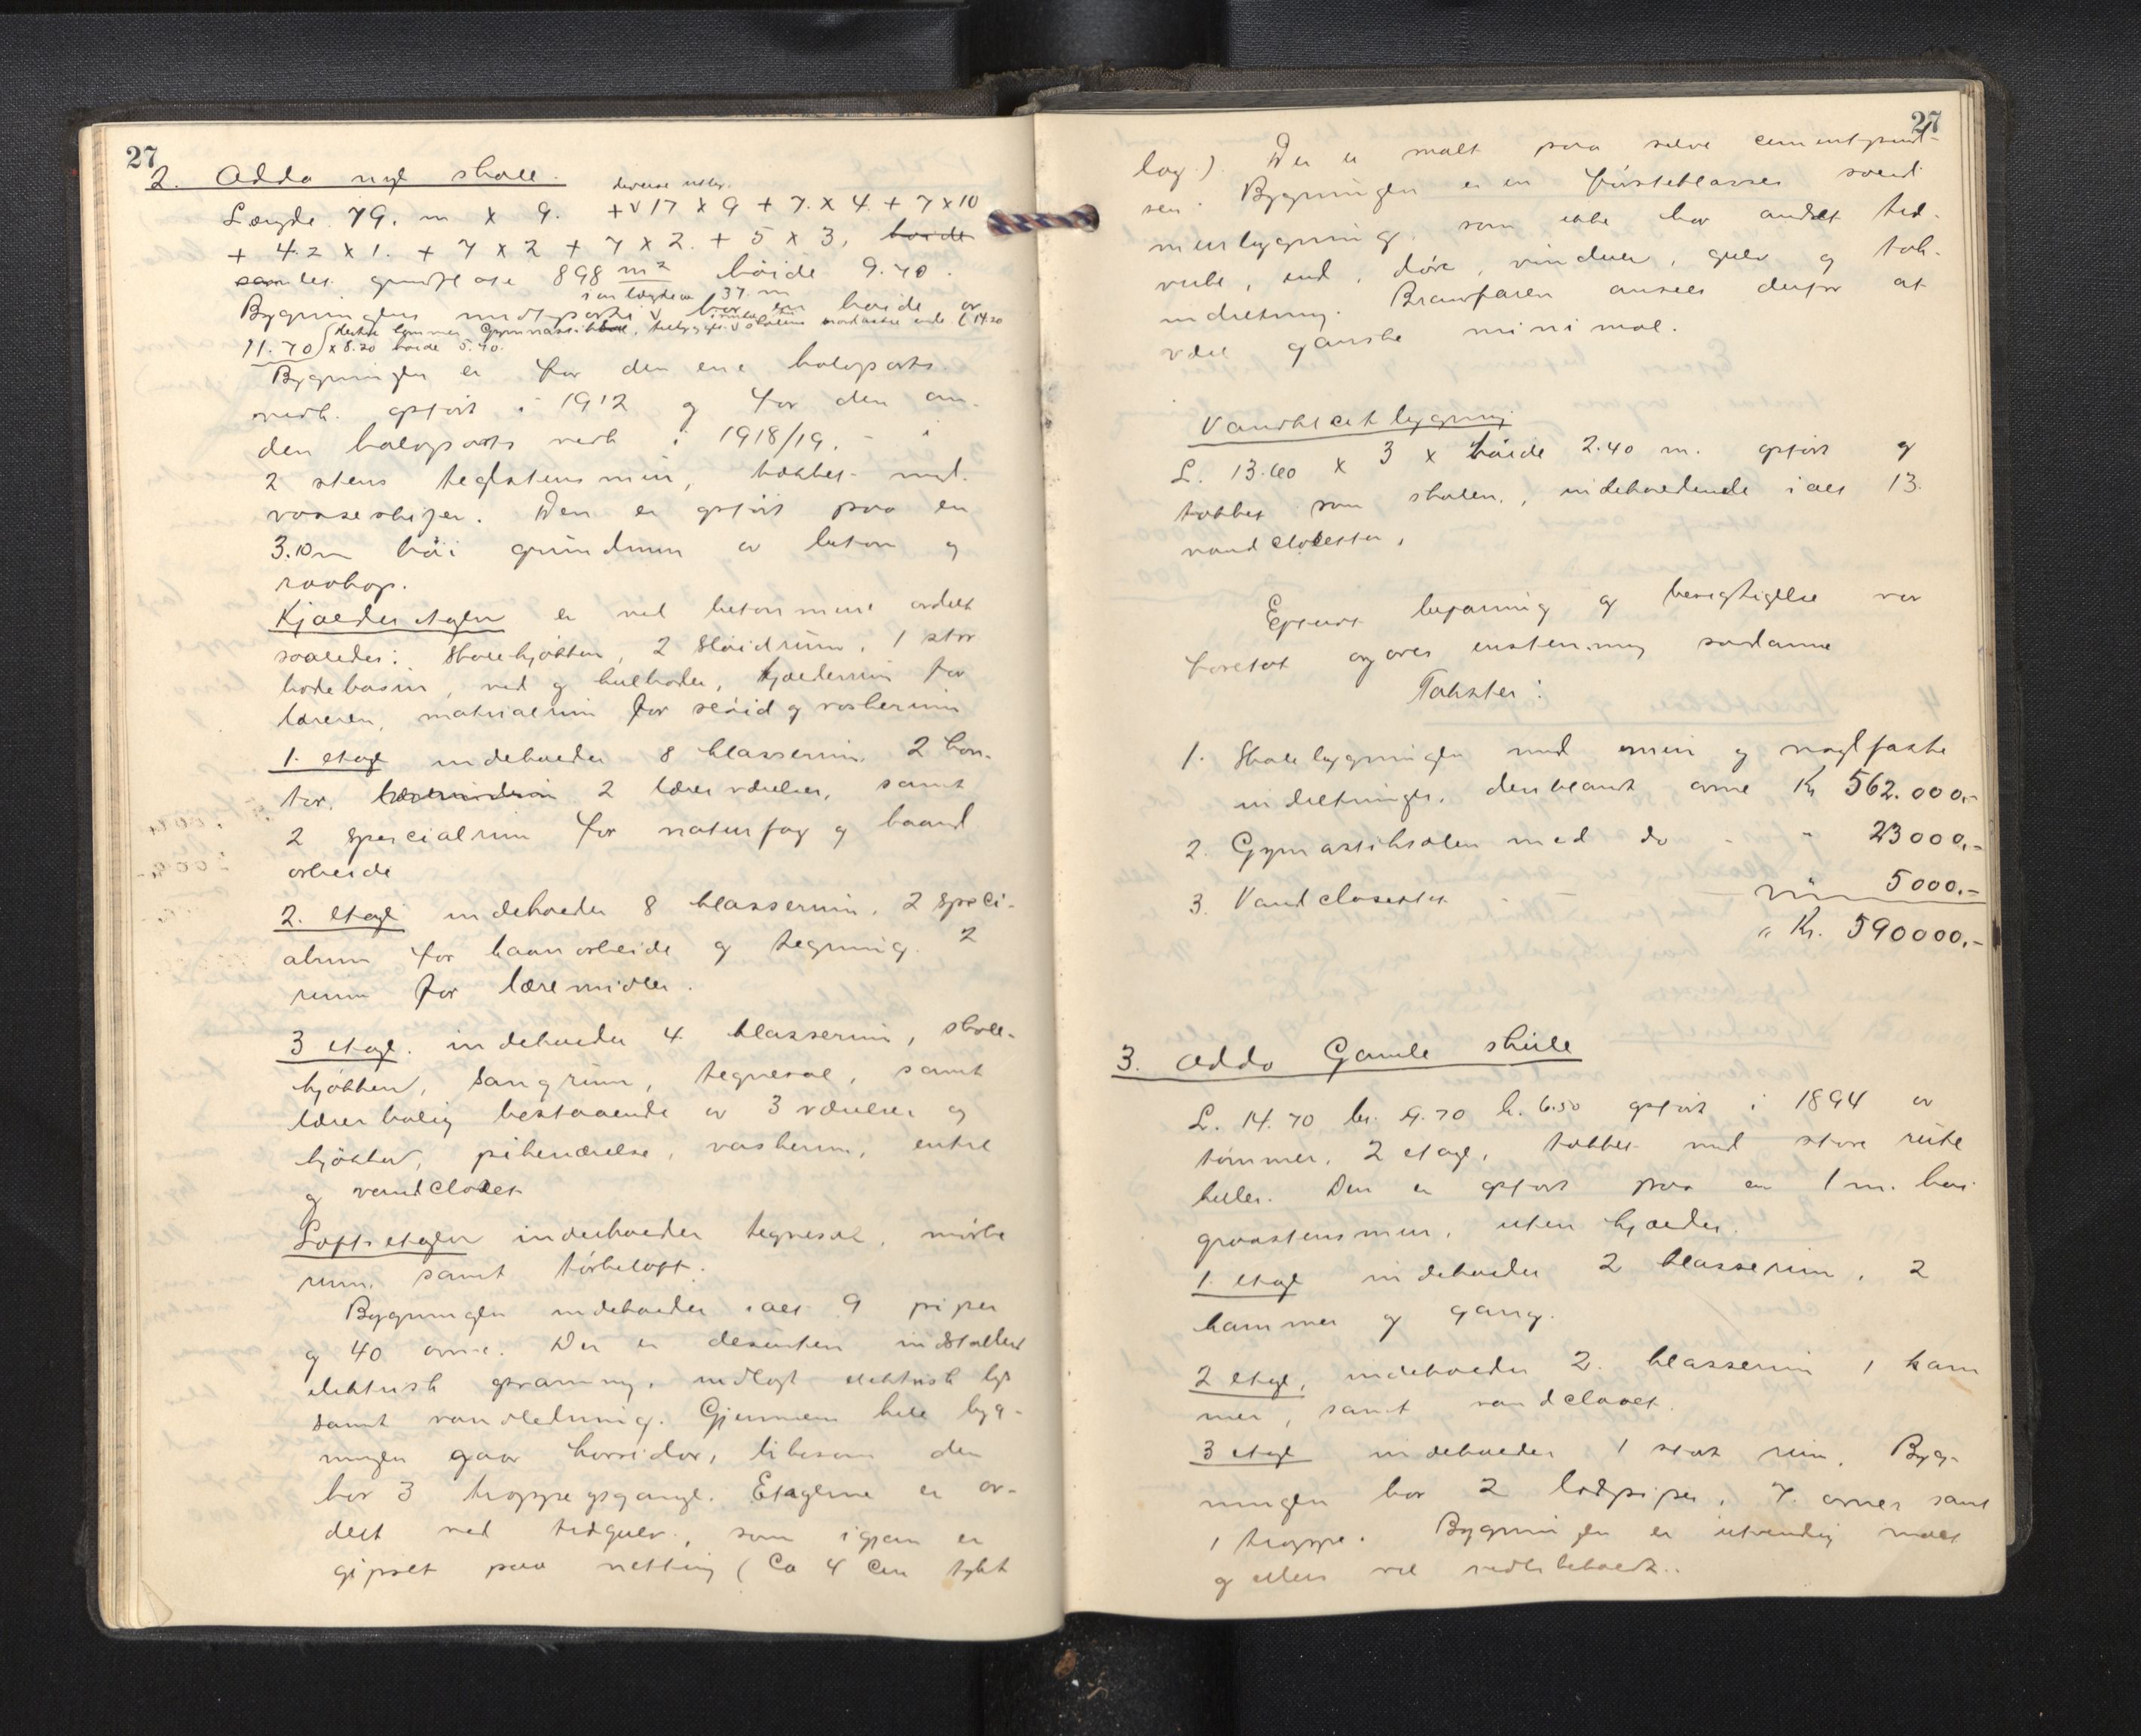 27
2. Odda nye skole.
diverse utbyg.
Længde 79. m x 9. + 17 x 9 + 7. x 4 + 7 x 10
+ 4.2 x 1. + 7 x 2 + 7 x 2. + 5 x 3,
samlet grundflate 898 m² höide 9.70.
i en længde av 37. m
Bygningens midtparti har en høide av
dertil kommer Gymnastiksal, skolens ende (14.20
11.70 x 8.20 høide 5.70.
Bygningen er for den ene halvparts
vedk. opført i 1912 og for den an-
den halvparts vedk i 1918/19. - i
2 stens teglstensmur, tækket med
vosseskifer. Den er opført paa en
3.10 m høi grundmur av beton og
Kjælderetagen er ved beton mure avdelt
saaledes: Skolekjøkken, 2 Sløidrum, 1 stor
badebasin, ved og kulboder, kjælderrum for
læreren, matrialrum for sløid og vaskerum
1. etage indeholder 8 klasserum. 2 kon-
tor. 2 lærerværelser, samt
2 specialrum for naturfag og haand
arbeide
2. etage indeholder 8 klasserum. 2 speci-
alrum for haanarbeide og tegning. 2
rum for læremidler.
3 etage. indeholder 4 klasserum, skole-
kjøkken, sangrum, tegnesal, samt
lærerbolig bestaaende av 3 værelser og
kjøkken, pikeværelse, vaskerum, entre
og vandcloset
Loftsetagen inderholder tegnesal, mørke
rum, samt tørkeloft.
Bygningen indeholder ialt 9 piper
og 40 ovne. Der er desuten indstallert
elektrisk opvarming, indlagt elektrisk lys
samt vandledning. Gjennem hele byg-
ningen gaar korridor, likesom den
har 3 trappeopgange. Etagerne er av-
delt ved trægulv, som igjen er
gipset paa netting (Ca 4 Cm tykt
27
lag.) Der er malt paa selve cementpud-
sen. Bygningen er en førsteklasses solid
murbygning. som ikke har andet træ-
verk, end, døre, vinduer, gulv og tak-
indretning. Brandfaren ansees derfor at
være ganske minimal.
Vandklosetbygning
L. 13.60 x 3 x høide 2.40 m. opført og
tækket som skolen, indeholdende ialt 13.
vandclosetter,
Efterat befaring og besigtigelse var
foretat avgaves enstemmig saadanne
Takster:
1. Skolebygningen med mur og naglfaste
indretninger. deriblandt ovne Kr 562.000,-
2. Gymnastiksalen med do - " 23000,-
3. Vandclosettet - 5000.-
" Kr. 590000,-
3. Odda Gamle skule
L. 14.70 br. 9.70 h. 6.50 opført i 1894 av
tømmer. 2 etage, tækket med store rute
heller. Den er opført paa en 1 m. høi
graastensmur, uten kjælder.
1. etage indeholder 2 klasserum, 2
kammer og gang.
2 etage, indeholder 2. klasserum 1 kam
mer, samt vandcloset.
3 etage indeholder 1 stort rum. Byg-
ningen har 2 lodpiper, 7. ovner samt
1 trappe. Bygningen er utvendig malt
og ellers vel vedlikeholdt..